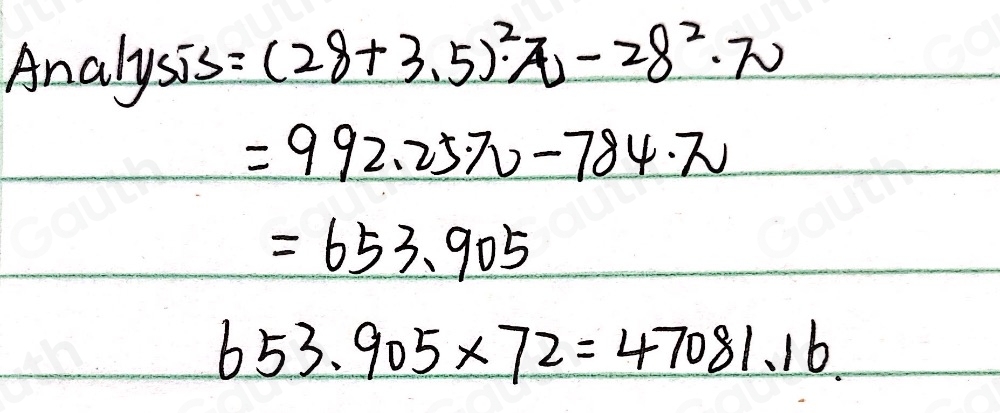 Analysis = (28+3.5)²·π - 28²·π
= 992.25·π - 784·π
= 653.905
653.905 × 72 = 47081.16.